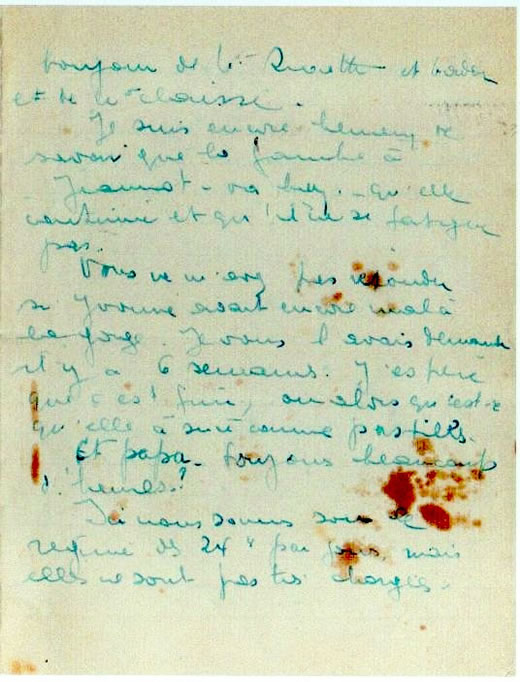 bonjour de Mr et
et de Mr Claisse.
Je suis encore heureux de
savoir que la jambe à
Jeannot va bien. qu'elle
continue et qu'il ne se fatigue
pas.
Vous ne m'avez pas répondu
si Yvonne avait encore mal à
la gorge. Je vous l'avais demandé
il y a 6 semaines. J'espère
que c'est fini, ou alors qu'est-ce
qu'elle à sucé comme pastilles.
Et papa. toujours beaucoup
d'heures?
Ici nous sommes sous le
régime des 24 h par jours, mais
elles ne sont pas très chargées.